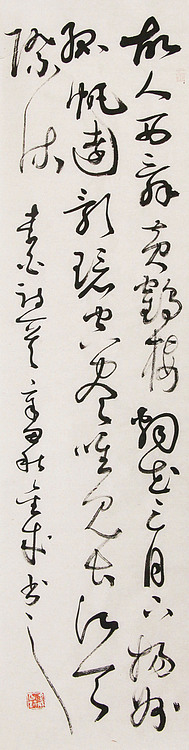 故人西辭黃鶴樓煙花三月下揚州
孤帆遠影碧空盡唯見長江天
際流
李白詩 秋 書之